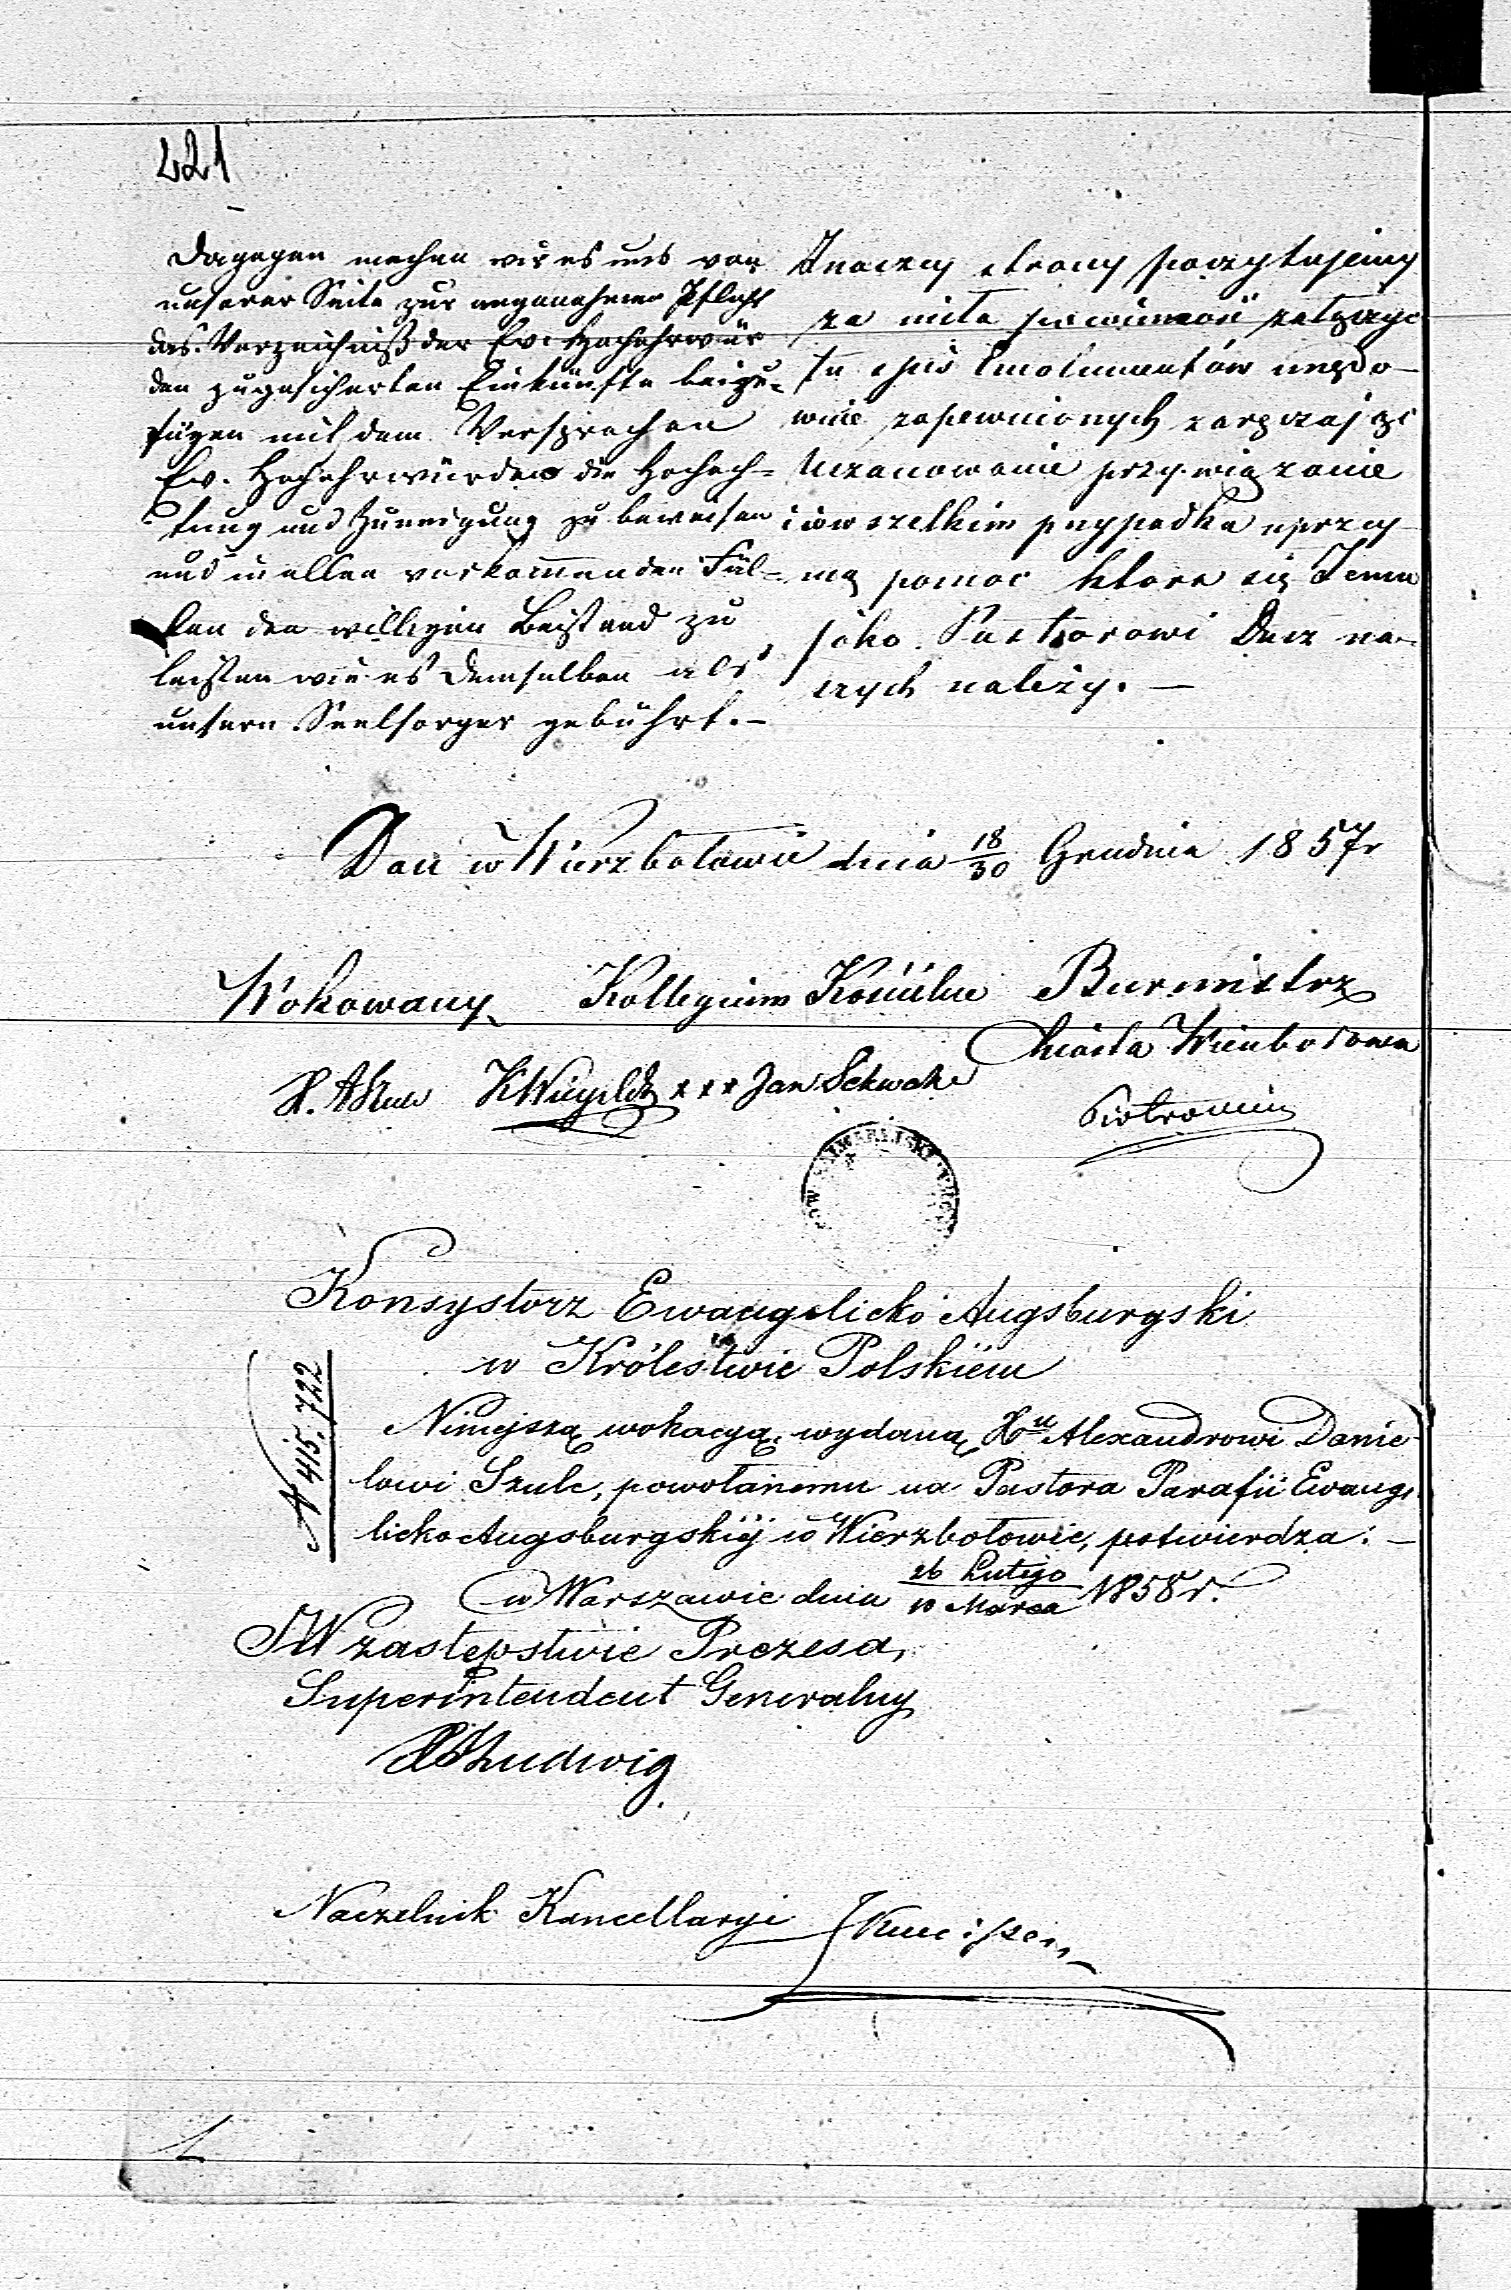 221
Dagegen machen wir es uns von
unserer Seite zur angenehmen Pflicht
das Verzeichniß der Ew. Hochehrwür
den zugesicherten Einkünfte beizu-
fügen mit dem Versprechen
Ew. Hochehrwürden die Hochach=
tung und Zuneigung zu beweisen
und in allen vorkommenden Fäl=
len den willigen Beistand zu
leisten wie es demselben als
unsern Seelsorger gebührt. –
strony poczytujemy
za miłą powinność załączyć
Tu spis Emolumentów urzędo-
wnie zapewnionych zaręczając
Uszanowanie przywiązanie
i w wszelkim przypadku uprzej
mą pomoc która się Jemu
jako Pastorowi Dusz na-
szych należy. —
Dan w Wierzbołowie dnia 18/30 Grudnia 1857r
Wokowany Kollegium Kościelne Burmistrz
Miasta Wierzbołowa
xxx Jan
Konsystorz Ewangelicko Augsburgski
w Królestwie Polskiém
N 415/722
Niniejszą wokacyą, wydaną Xu Alexandrowi Danie-
lowi Szulc, powołanemu na Pastora Parafii Ewange
licko Augsburgskiéj w Wierzbołowie, potwierdza. —
w Warszawie dnia 26 Lutego/10 Marca 1858 r.
W zastępstwie Prezesa,
Superintendent Generalny
Ludwig
Naczelnik Kancellaryi